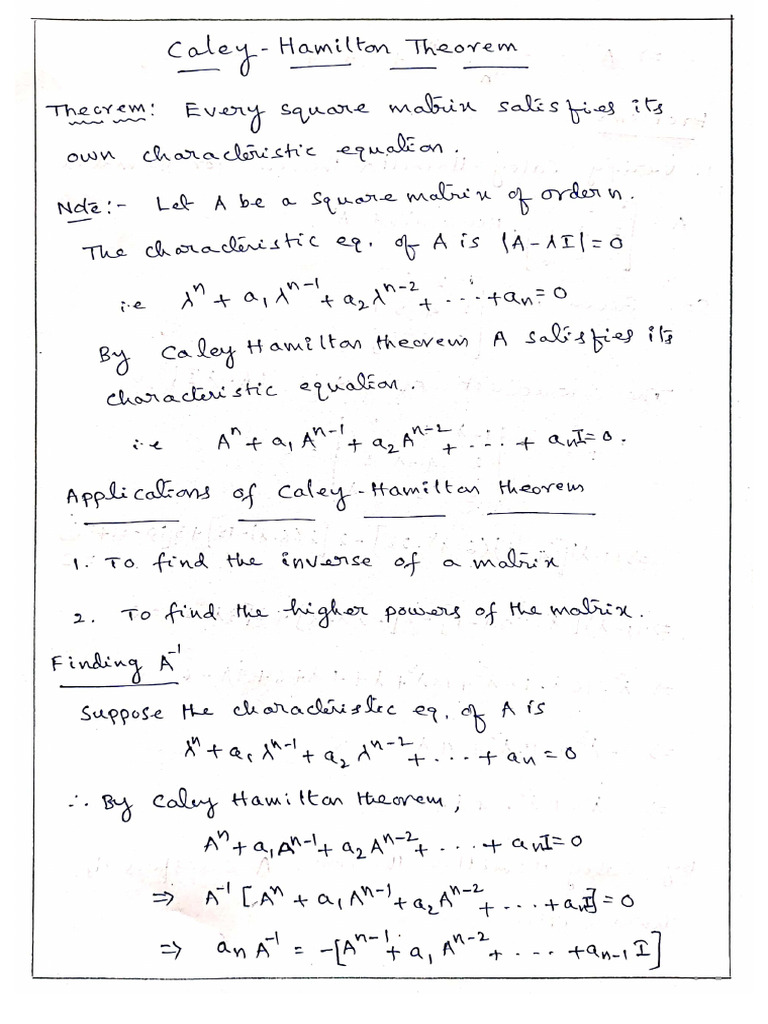 Caley-Hamilton Theorem
Theorem: Every square matrix satisfies its
own characteristic equation.
Note:- Let A be a square matrix of order n.
The characteristic eq. of A is |A-λI|=0
i.e λⁿ + a₁λⁿ⁻¹ + a₂λⁿ⁻² + ... + aₙ = 0
By Caley Hamilton theorem A satisfies its
characteristic equation.
i.e Aⁿ + a₁Aⁿ⁻¹ + a₂Aⁿ⁻² + ... + aₙI = 0.
Applications of Caley-Hamilton theorem
1. To find the inverse of a matrix
2. To find the higher powers of the matrix.
Finding A⁻¹
Suppose the characteristic eq. of A is
λⁿ + a₁λⁿ⁻¹ + a₂λⁿ⁻² + ... + aₙ = 0
∴ By Caley Hamilton theorem,
Aⁿ + a₁Aⁿ⁻¹ + a₂Aⁿ⁻² + ... + aₙI = 0
⇒ A⁻¹[Aⁿ + a₁Aⁿ⁻¹ + a₂Aⁿ⁻² + ... + aₙI] = 0
⇒ aₙA⁻¹ = -[Aⁿ⁻¹ + a₁Aⁿ⁻² + ... + aₙ₋₁I]